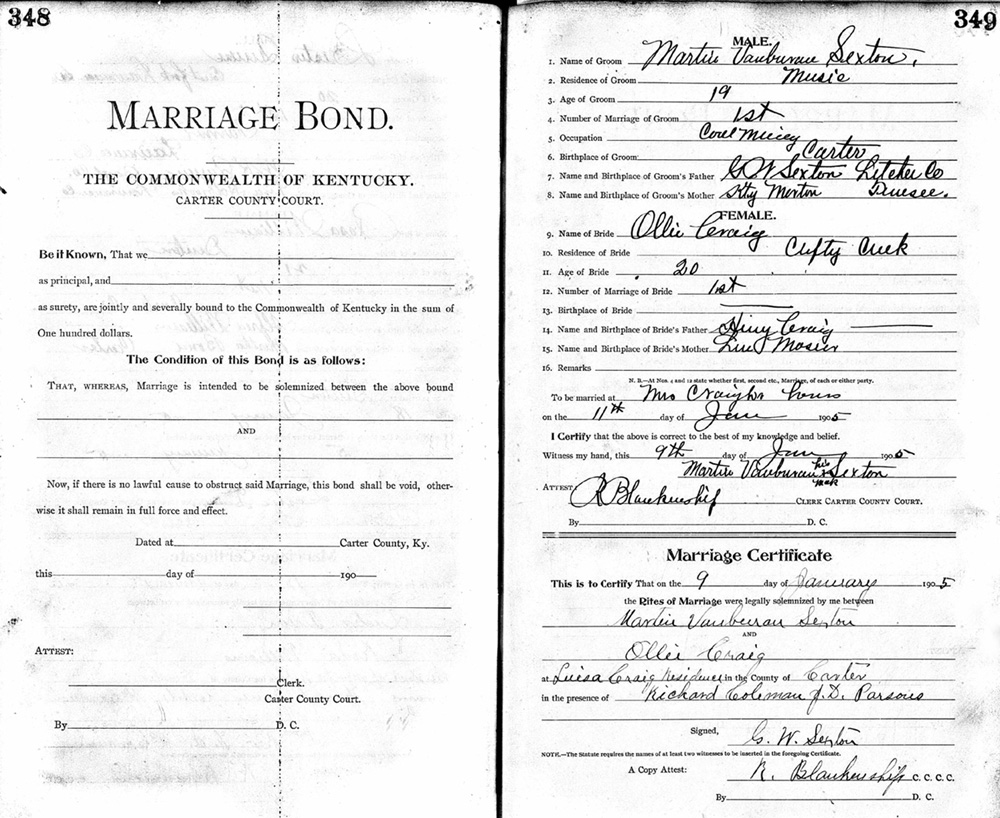 348
MARRIAGE BOND.
THE COMMONWEALTH OF KENTUCKY.
CARTER COUNTY COURT.
Be it Known, That we
as principal, and
as surety, are jointly and severally bound to the Commonwealth of Kentucky in the sum of
One hundred dollars.
The Condition of this Bond is as follows:
THAT, WHEREAS, Marriage is intended to be solemnized between the above bound
AND
Now, if there is no lawful cause to obstruct said Marriage, this bond shall be void, other-
wise it shall remain in full force and effect.
Dated at Carter County, Ky.
this day of 190
ATTEST:
Clerk.
Carter County Court.
By D. C.
349
MALE.
1. Name of Groom Martin Vanburan Sexton,
2. Residence of Groom Music
3. Age of Groom 19
4. Number of Marriage of Groom 1st
5. Occupation
6. Birthplace of Groom: Carter
7. Name and Birthplace of Groom's Father G W Sexton Letcher Co
8. Name and Birthplace of Groom's Mother
FEMALE.
9. Name of Bride Ollie Craig
10. Residence of Bride Clifty Creek
11. Age of Bride 20
12. Number of Marriage of Bride 1st
13. Birthplace of Bride
14. Name and Birthplace of Bride's Father Craig
15. Name and Birthplace of Bride's Mother Mosier
16. Remarks
N. B.—At Nos. 4 and 12 state whether first, second etc., Marriage, of each or either party.
To be married at Mrs
on the 11th day of Jan 1905
I Certify that the above is correct to the best of my knowledge and belief.
Witness my hand, this 9th day of Jan 1905
Martin Vanburan his Sexton
mark
ATTEST R Blankenship CLERK CARTER COUNTY COURT.
By D. C.
Marriage Certificate
This is to Certify That on the 9 day of January 1905
the Rites of Marriage were legally solemnized by me between
Martin Vanburan Sexton
AND
Ollie Craig
at Luisa Craig Residence in the County of Carter
in the presence of Richard Coleman J. D. Parsons
Signed, G. W. Sexton
NOTE.—The Statute requires the names of at least two witnesses to be inserted in the foregoing Certificate.
A Copy Attest: R. Blankenship C. C. C. C.
By D. C.